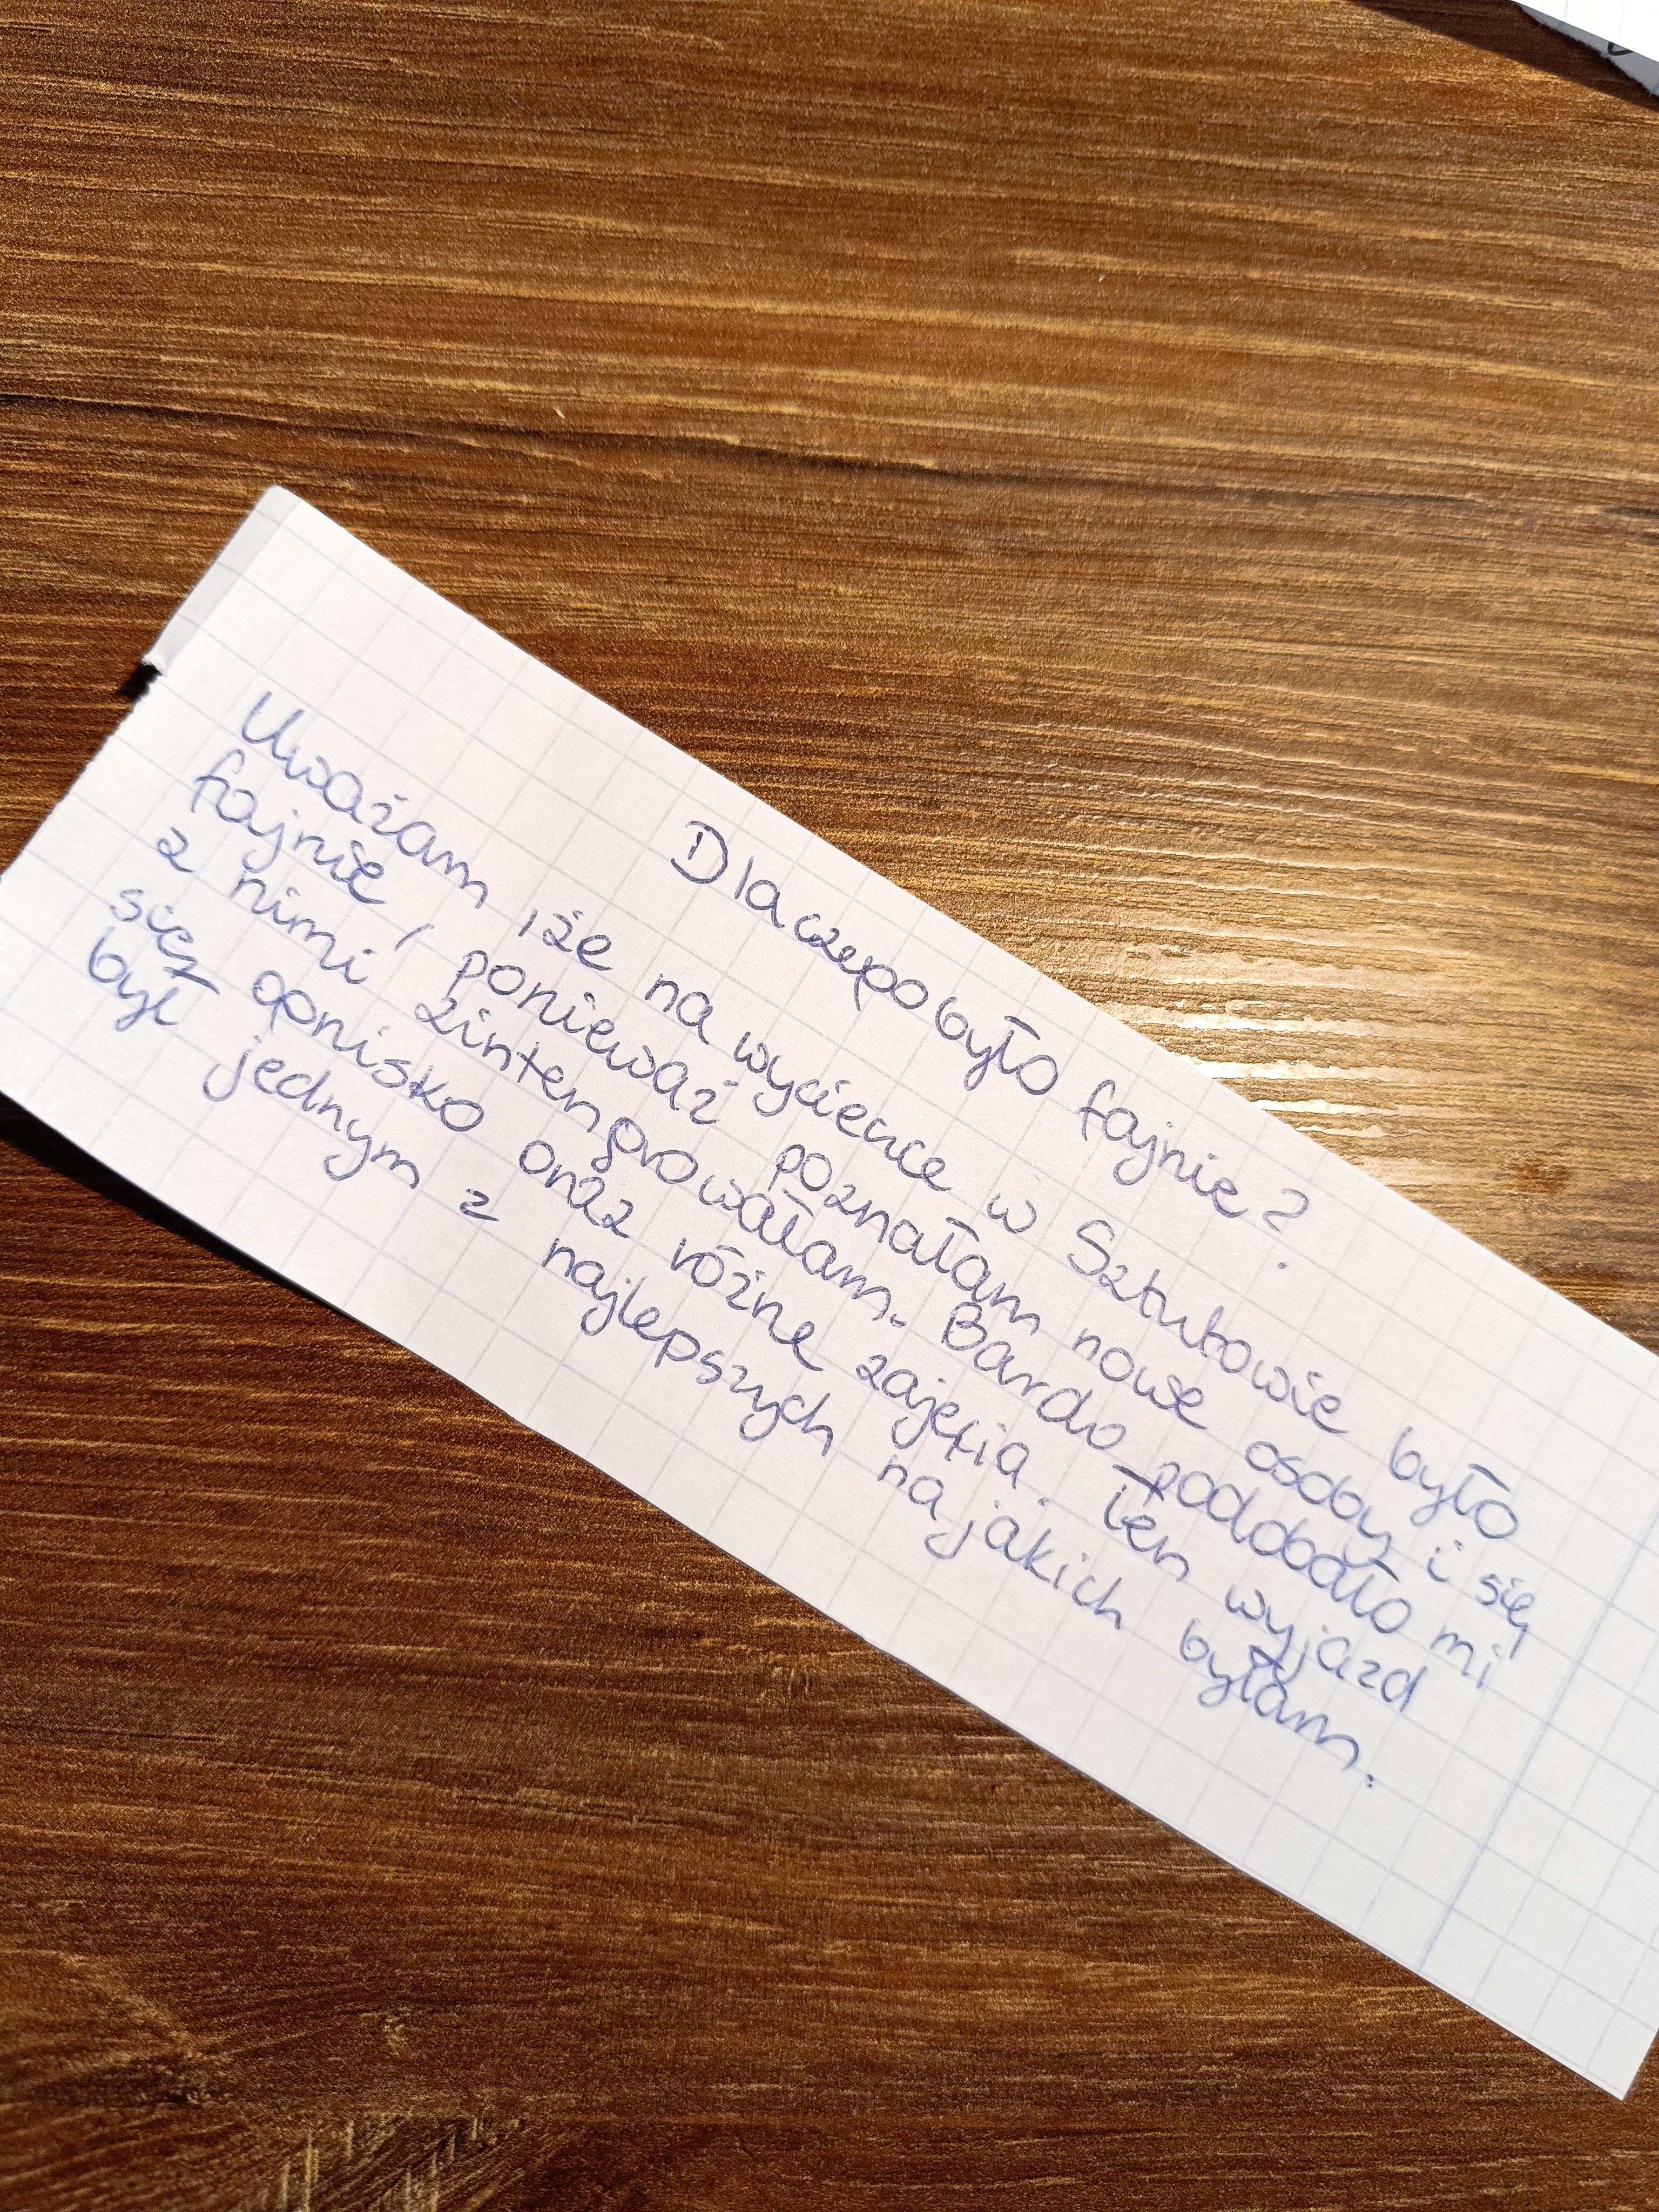 Dlaczego było fajnie?
Uważam, że na wycieczce w Sztutowie było
fajnie, ponieważ poznałam nowe osoby i się
z nimi zintengrowałam. Bardo podobało mi
się ognisko oraz różne zajęcia. Ten wyjazd
był jednym z najlepszych na jakich byłam.